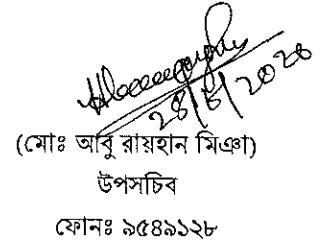 28/6/2020
(মোঃ আবু রায়হান মিঞা)
উপসচিব
ফোনঃ ৯৫৪৯১২৮